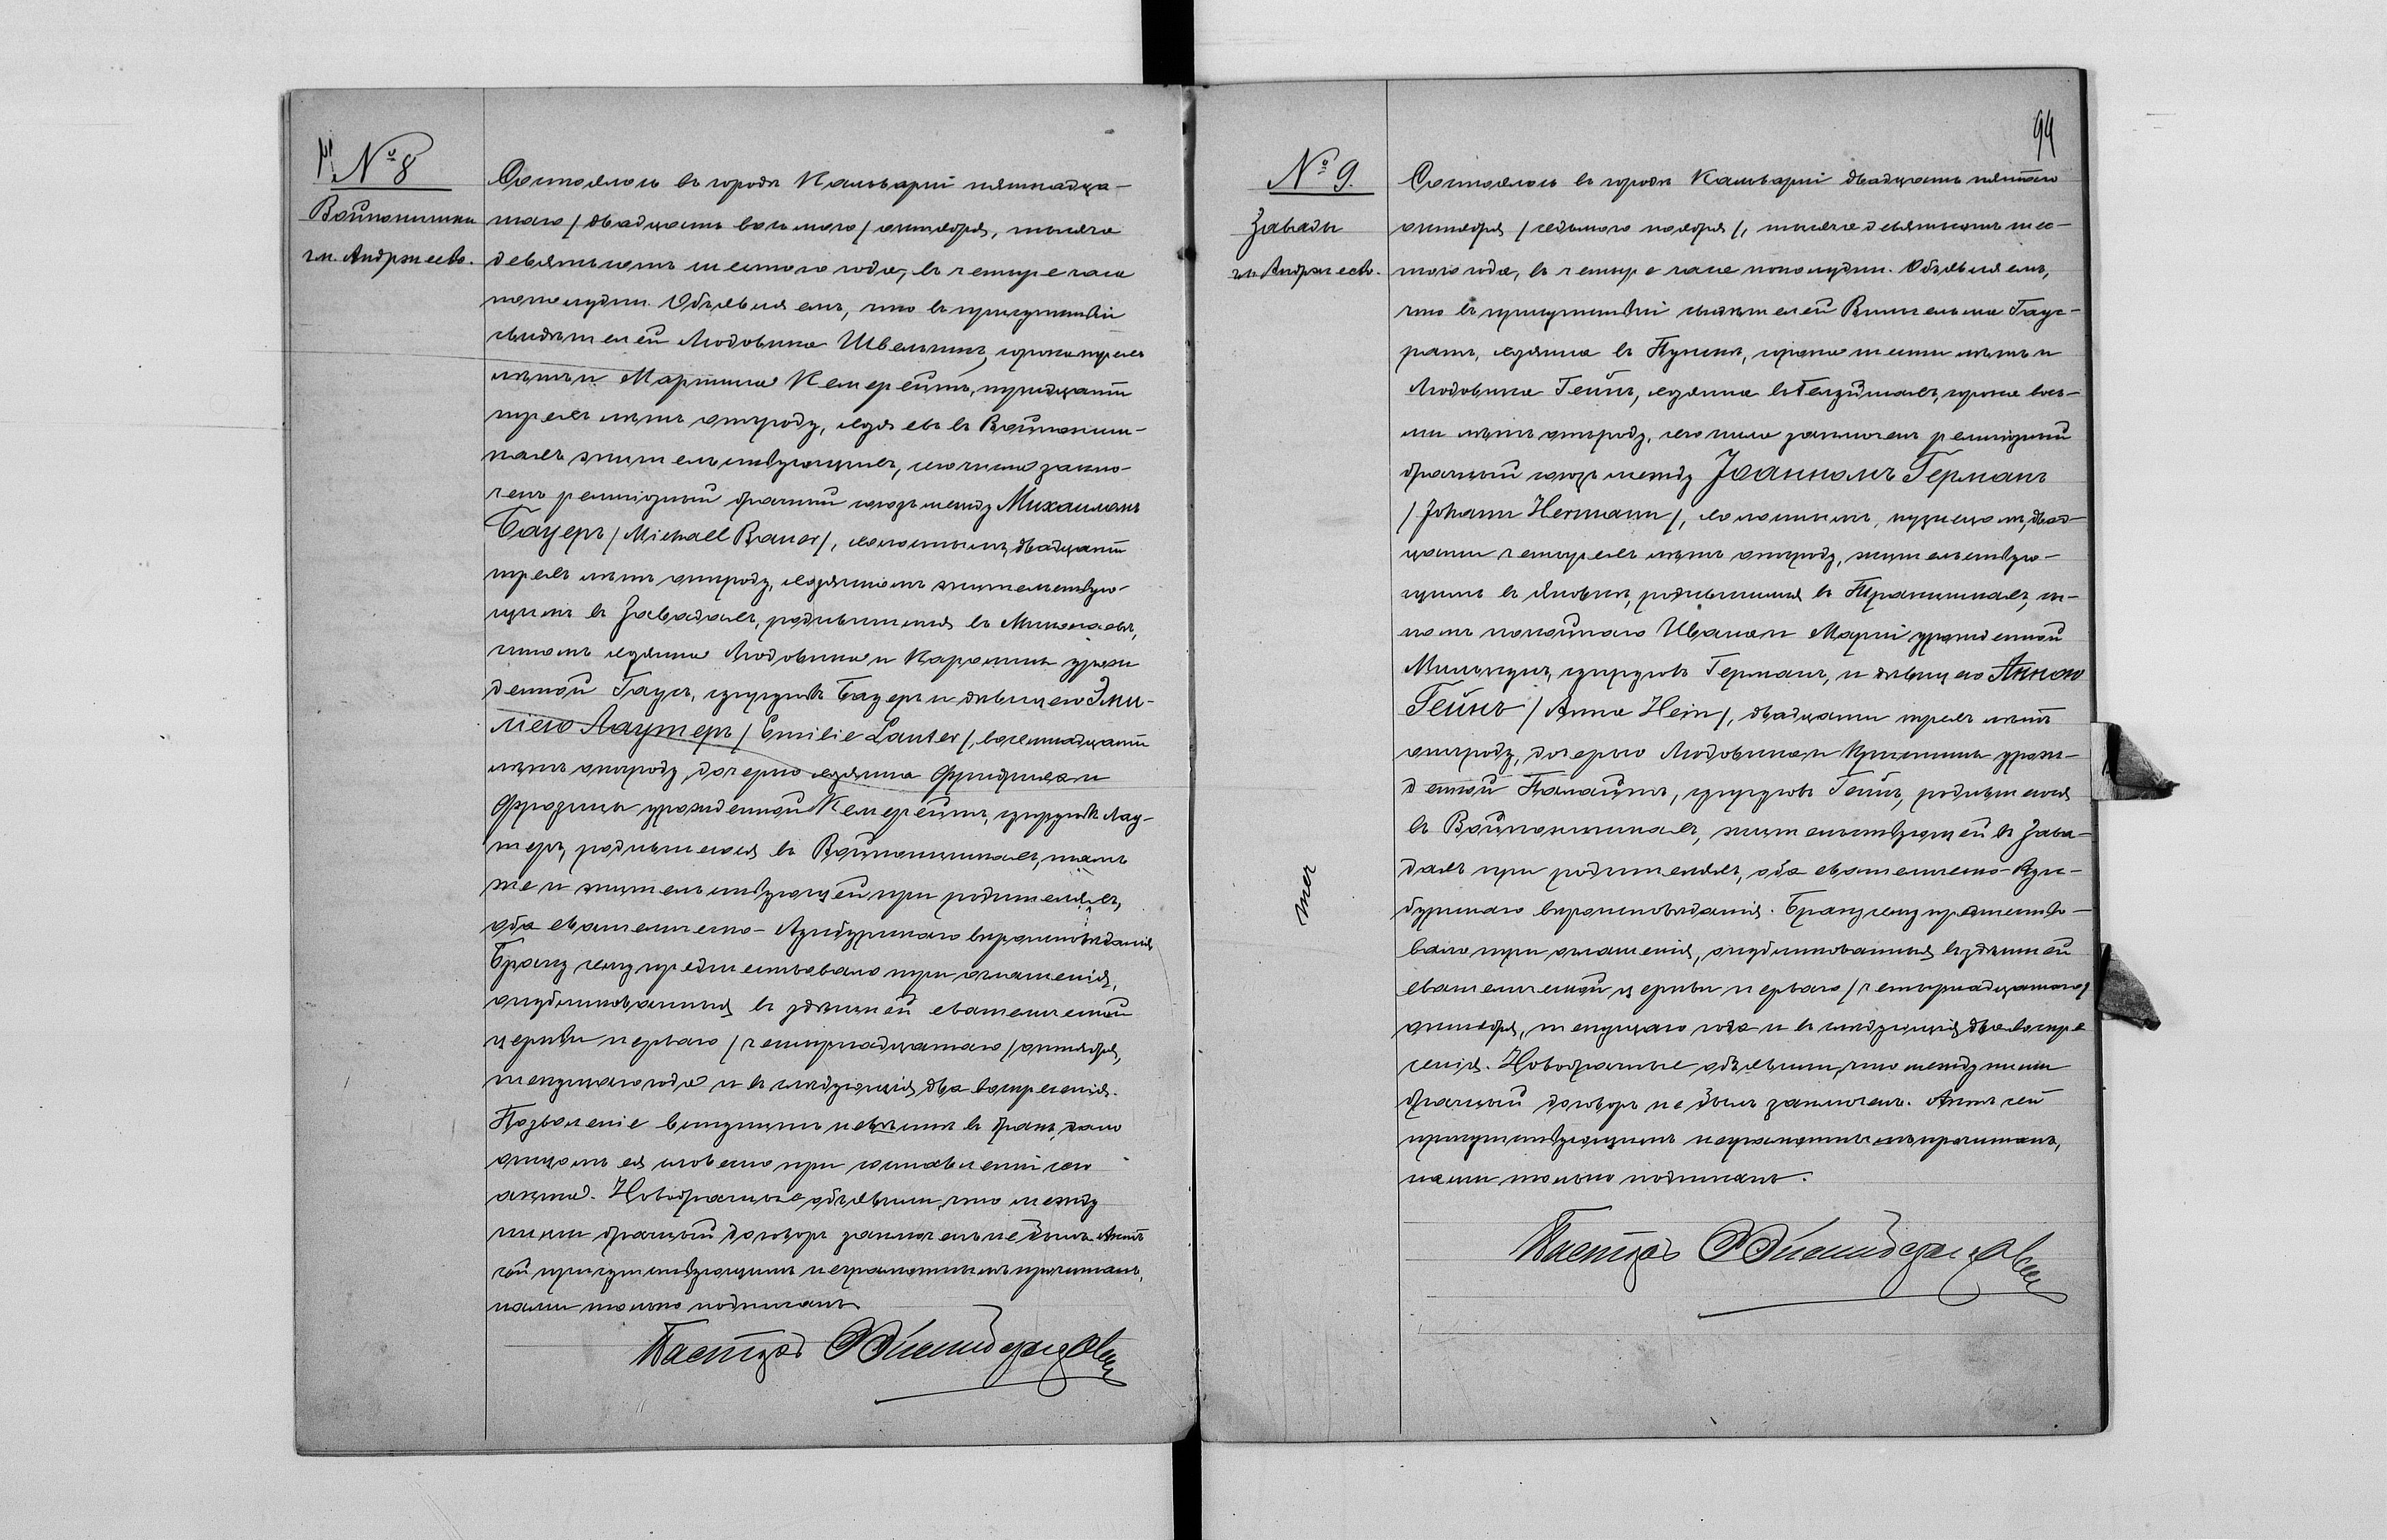 № 8
Войпонишки
гм. Андржеево.
Состоялось въ городѣ Кальваріи пятнадца-
таго / двадцать восьмаго / октября, тысяча
девятьсотъ шестого года, въ четыре часа
пополудни. Объявляемъ, что въ присутствіи
свидѣтелей Людовика Швельнинъ, сорока трехъ
лѣтъ и Мартина Кемерейтъ, тридцати
трехъ лѣтъ отъ роду, хозяевъ въ Войпониш-
кахъ жительствующихъ, сего числа заклю-
ченъ религіозный брачный союзъ между Михаиломъ
Бауеръ / Michael Bauer /, холостымъ, двадцати
трехъ лѣтъ отъ роду, хозяиномъ жительствую-
щимъ въ Завадахъ, родившимся въ
сыномъ хозяина Людовика и Каролины урож-
денной Гаусъ, супруговъ Бауеръ и дѣвицею Эми-
ліею Лаутеръ / Emilie Lauter /, восемнадцати
лѣтъ отъ роду, дочерью хозяина Фридриха и
Фрозины урожденной Кемерейтъ, супруговъ Лау-
теръ, родившеюся въ Войпонишкахъ, тамъ
же и жительствующей при родителяхъ,
оба евангелическо-Аугсбургскаго вѣроисповѣданія.
Браку сему предшествовало три оглашенія,
опубликованныя въ здѣшней евангелической
церкви перваго / четырнадцатаго / октября,
текущаго года и въ слѣдующія два воскресенія.
Позволеніе вступить невѣстѣ въ бракъ, дано
отцомъ ея словесно при составленіи сего
акта. Новобрачные объявили, что между
ними брачный договоръ заключенъ не былъ. Актъ
сей присутствующимъ неграмотнымъ прочитанъ,
нами только подписанъ.
Пасторъ
94
№ 9.
Завады
гм. Андржеево.
Состоялось въ городѣ Кальваріи двадцать пятаго
октября / седьмого ноября /, тысяча девятьсотъ шес-
того года, въ четыре часа пополудни. Объявляемъ,
что въ присутствіи свидѣтелей Вильгельма Гаус-
ратъ, хозяина въ Пунскѣ, сорока шести лѣтъ и
Людовика Гейнъ, хозяина въ сорока вось-
ми лѣтъ отъ роду, сего числа заключенъ религіозный
брачный союзъ между Іоанномъ Германъ
/ Johann Hermann /, холостымъ, кузнецомъ, двад-
цати четырехъ лѣтъ отъ роду, жительствую-
щимъ въ родившимся въ сы-
номъ покойнаго Ивана и Маріи урожденной
супруговъ Германъ, и дѣвицею Анною
Гейнъ / Anna Hein /, двадцати трехъ лѣтъ
отъ роду, дочерью Людовика и Кристины урож-
денной супруговъ Гейнъ, родившеюся
въ Войпонишкахъ, жительствующей въ Зава-
дахъ при родителяхъ, оба евангелическо-Аугс-
бургскаго вѣроисповѣданія. Браку сему предшество-
вало три оглашенія, опубликованныя въ здѣшней
евангелической церкви перваго / четырнадцатаго /
октября, текущаго года и въ слѣдующія два воскре-
сенія. Новобрачные объявили, что между ними
брачный договоръ не былъ заключенъ. Актъ сей
присутствующимъ неграмотнымъ прочитанъ,
нами только подписанъ.
Пасторъ